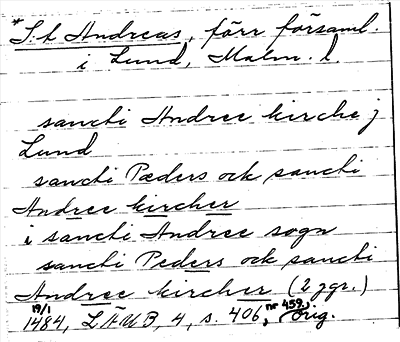 *S:t Andreas, förr församl.
i Lund, Malm. l.
sancti Andree kirche j
Lund
sancti Pæders ock sancti
Andree kircher
i sancti Andree sogn
sancti Peders ock sancti
Andree kircher (2 ggr.)
19/1 1484, LÄUB, 4, s. 406, nr 459, Orig.